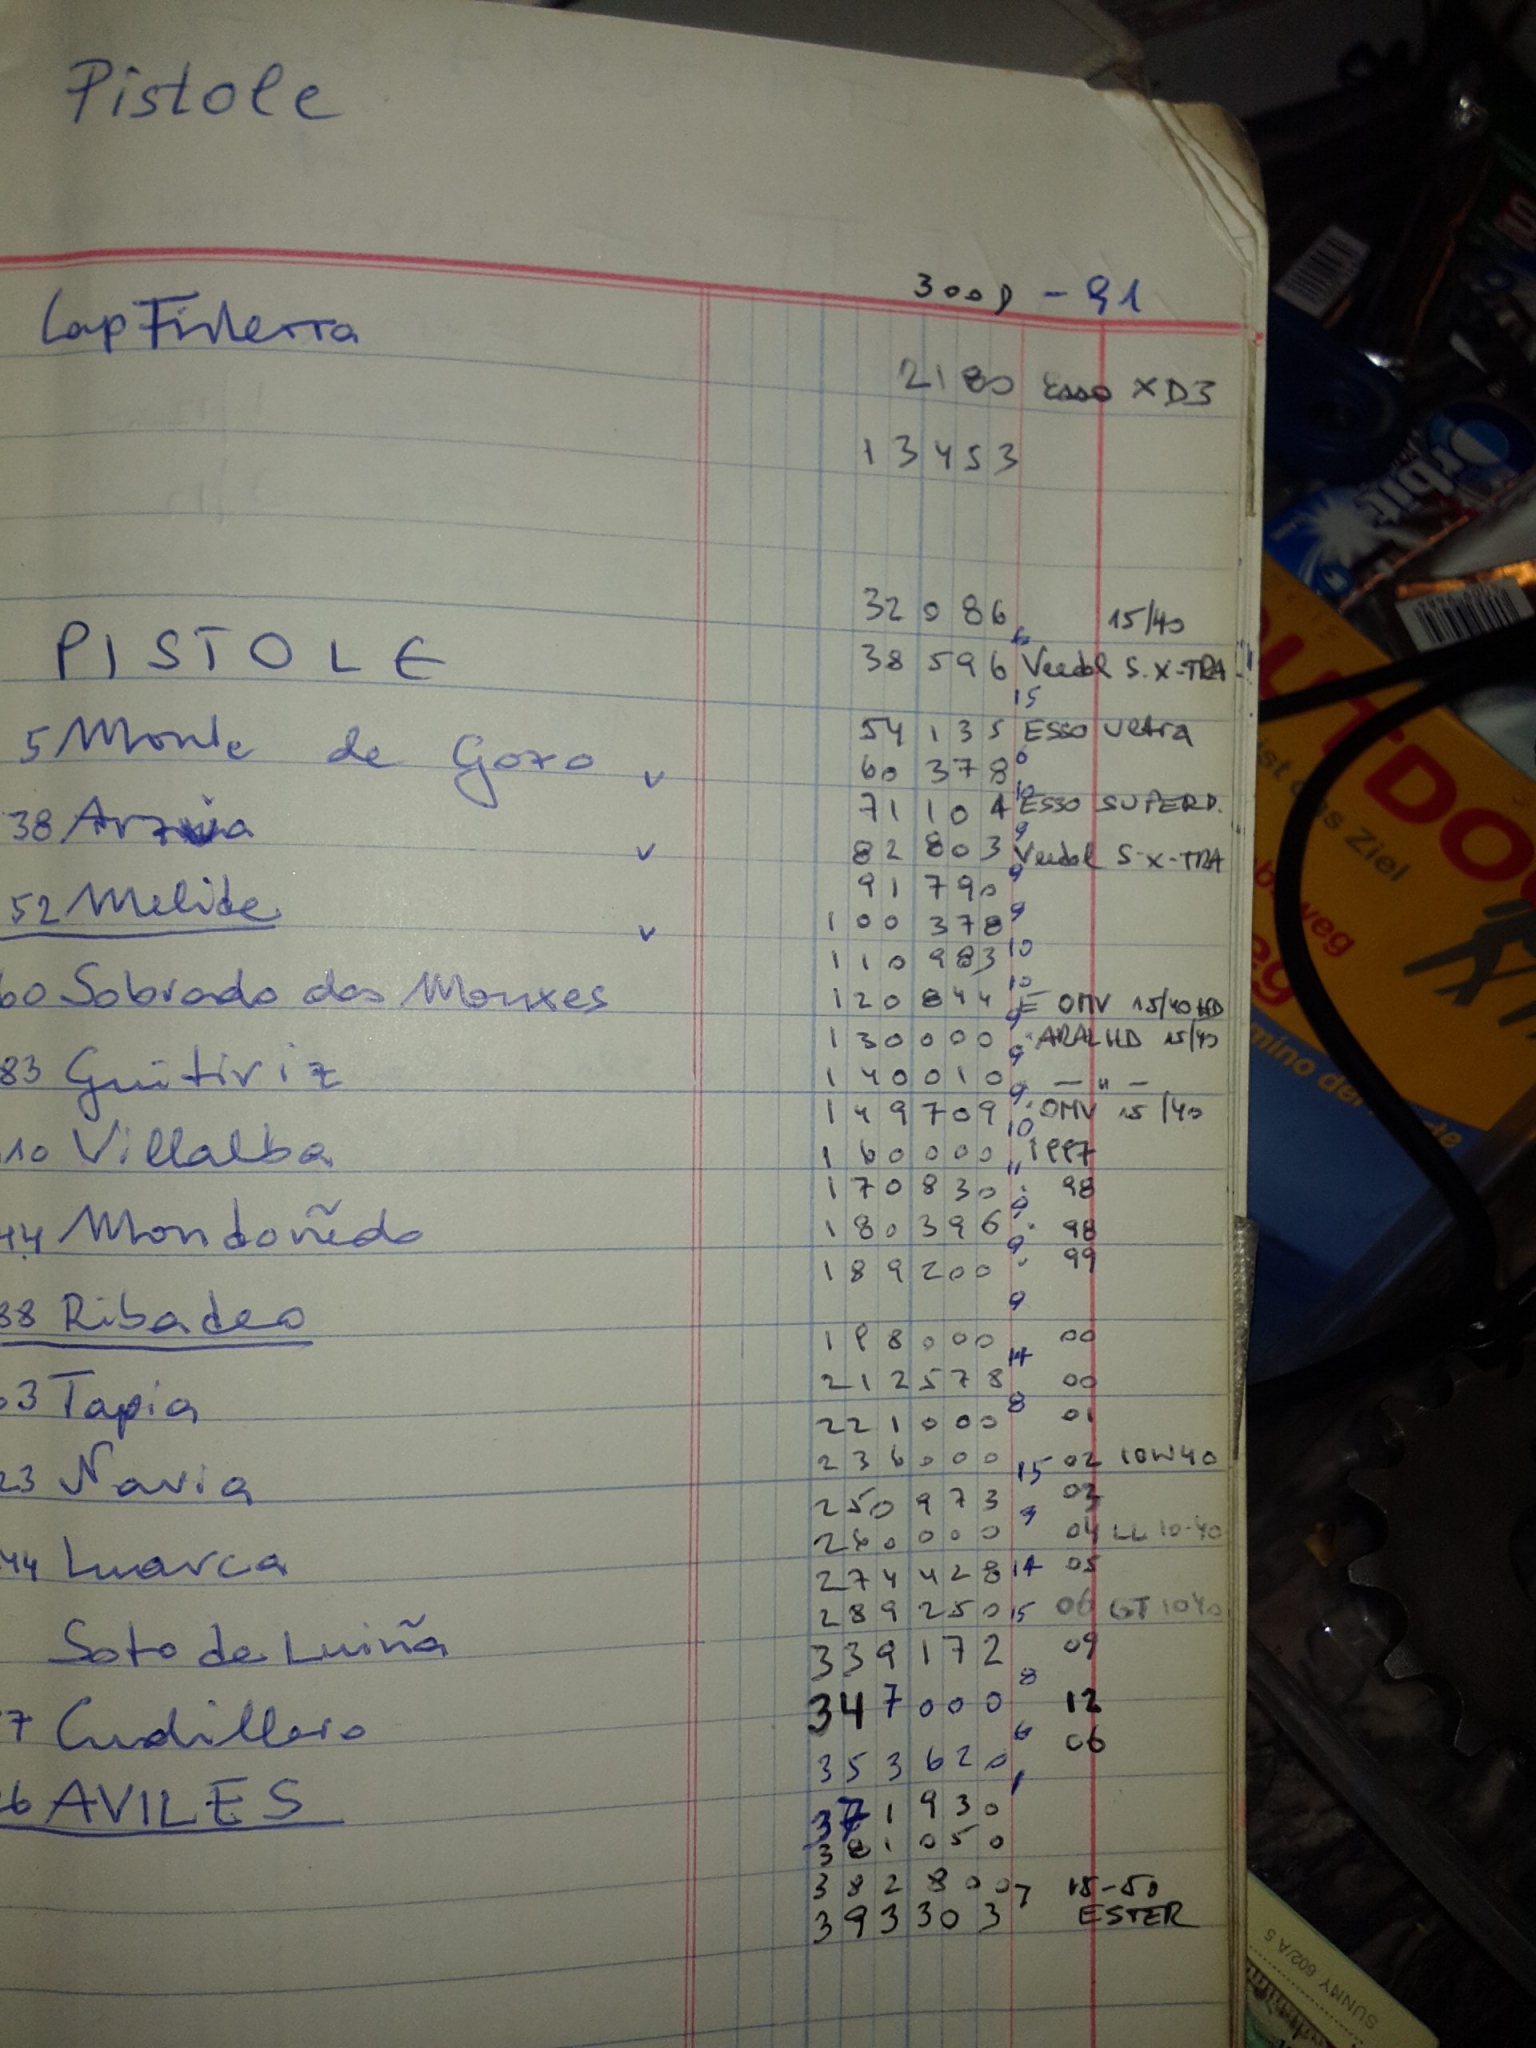 Pistole
300D - 91
Cap Fisterra
2180 Esso XD3
13453
32086 15/40
6
PISTOLE
38596 Veedol S. X-TRA
15
5 Monte de Gozo v
54135 ESSO Ultra
60378 6
10
38 Arzua v
71104 ESSO SUPERD.
9
82803 Veedol S-X-TRA
52 Melide v
91790 9
100378 9
110983 10
60 Sobrado dos Monxes
10
120844 E OMV 15/40 HD
9
130000 ARAL HD 15/40
83 Guitiriz
9
140010 — " —
9
149709 OMV 15/40
10 Villalba
10
160000 1997
11
170830 98
44 Mondoñedo
9
180396 98
9
189200 99
9
38 Ribadeo
198000 00
14
212578 00
03 Tapia
8
221000 01
236000 15 02 10W40
23 Navia
250973 03
9
260000 04 LL 10-40
44 Luarca
274428 14 05
289250 15 06 GT 1040
Soto de Luiña
339172 09
8
347000 12
7 Cudillero
6
06
353620
1
26 AVILES
371930
381050
382800 7 15-50
393303 ESTER
Orbit
OUTDO
ist das Ziel
weg
eg
mino der
SUNNY 602/A5